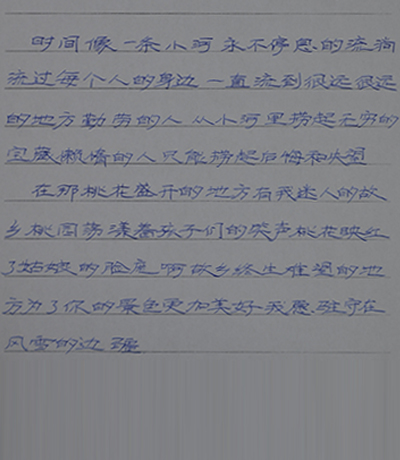 时间像一条小河永不停息的流淌
流过每个人的身边一直流到很远很远
的地方勤劳的人从小河里捞起无穷的
宝藏懒惰的人只能捞起后悔和失望
在那桃花盛开的地方有我迷人的故
乡桃园荡漾着孩子们的笑声桃花映红
了姑娘的脸庞啊故乡终生难望的地
方为了你的景色更加美好我愿驻守在
风雪的边疆